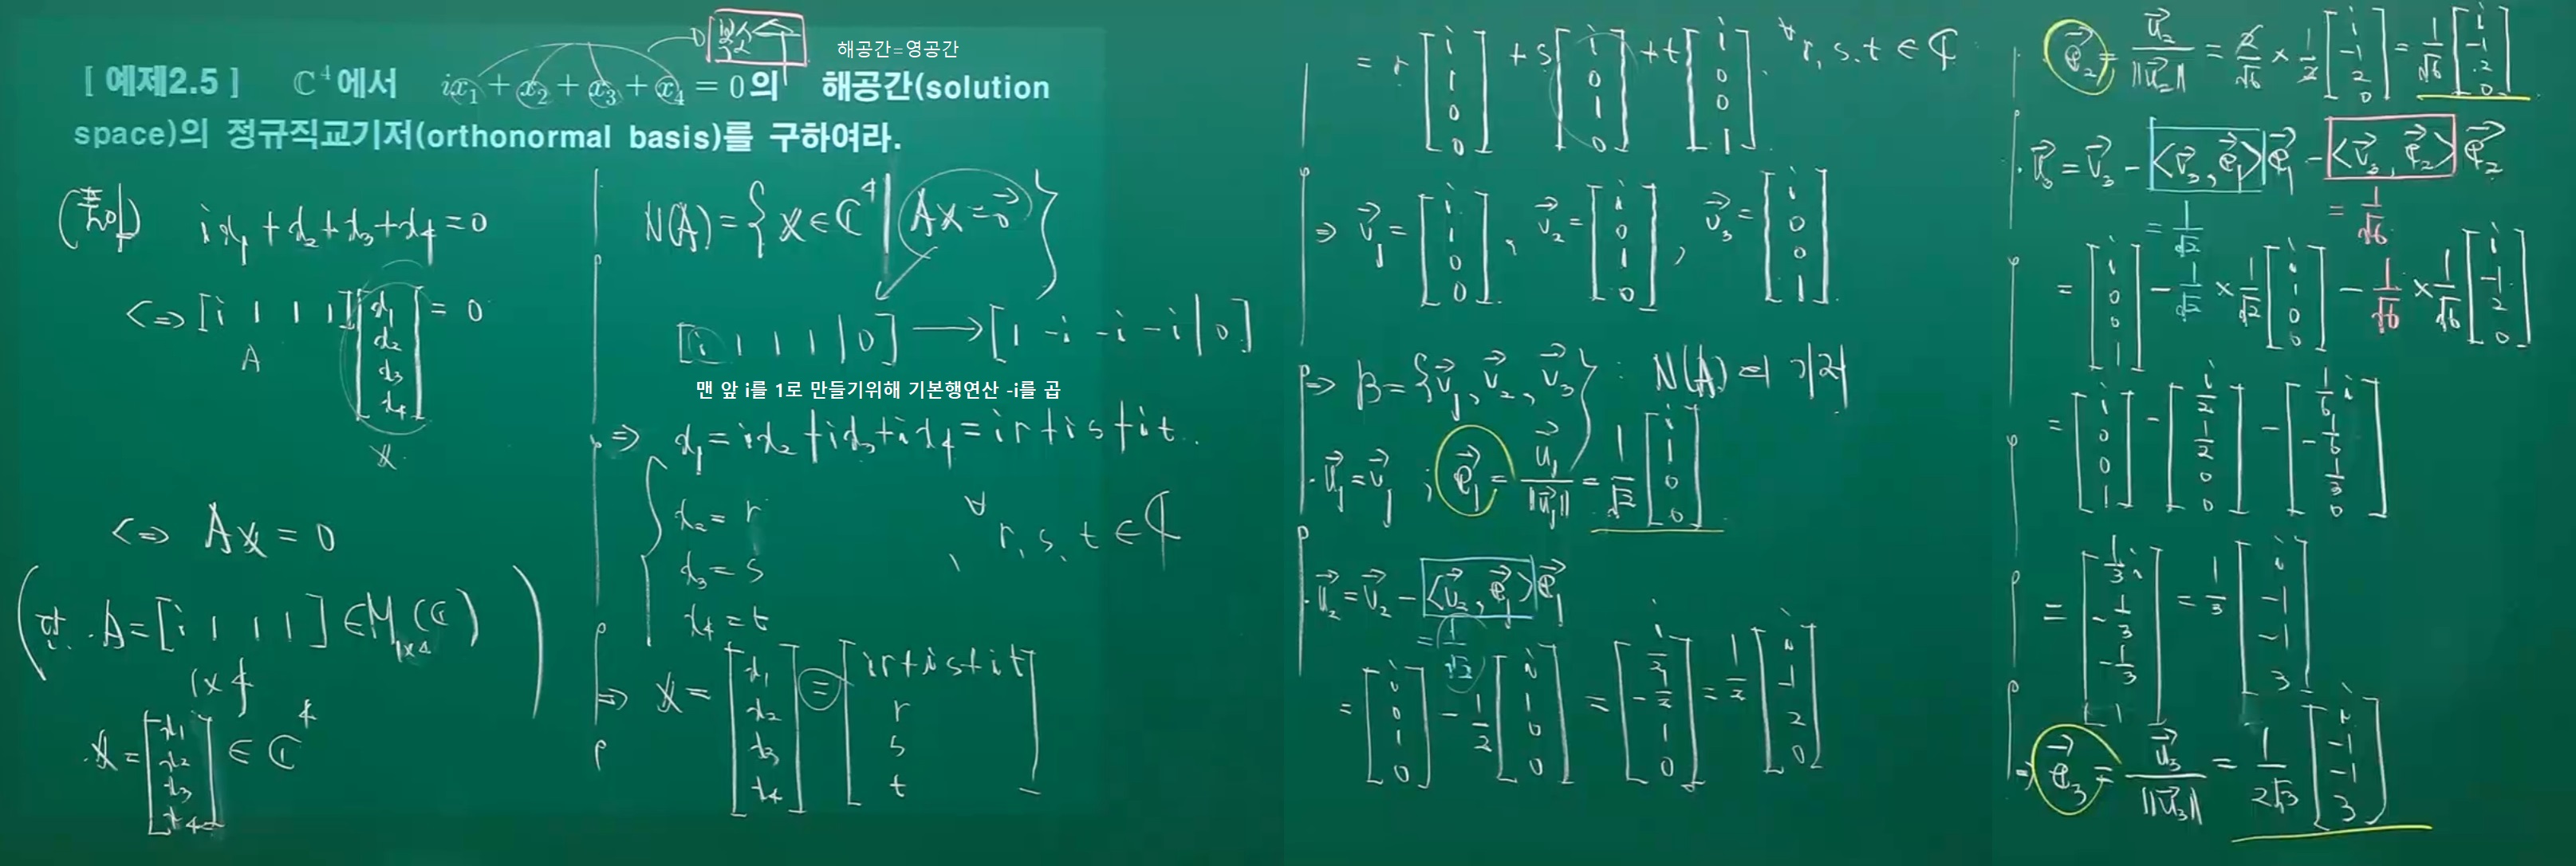 복소수
해공간=영공간
[ 예제2.5 ] ℂ⁴에서 ix₁+x₂+x₃+x₄=0의 해공간(solution
space)의 정규직교기저(orthonormal basis)를 구하여라.
(풀이) ix₁+x₂+x₃+x₄=0
<=> [i 1 1 1][x₁ x₂ x₃ x₄] = 0
A
x
<=> Ax = 0
(단. A=[i 1 1 1] ∈M₁ₓ₄(ℂ)
1x4
x=[x₁ x₂ x₃ x₄] ∈ ℂ⁴ )
N(A)={x∈ℂ⁴|Ax=0⃗}
[i 1 1 1 | 0] → [1 -i -i -i | 0]
맨 앞 i를 1로 만들기위해 기본행연산 -i를 곱
=> x₁=ix₂+ix₃+ix₄=ir+is+it.
x₂=r
x₃=s
x₄=t
, ∀r,s,t∈ℂ
=> x=[x₁ x₂ x₃ x₄]=[ir+is+it r s t]
= r[i 1 0 0] + s[i 0 1 0] + t[i 0 0 1]. ∀r,s,t ∈ ℂ
=> v⃗₁=[i 1 0 0], v⃗₂=[i 0 1 0], v⃗₃=[i 0 0 1]
=> B={v⃗₁, v⃗₂, v⃗₃} : N(A)의 기저
·u⃗₁=v⃗₁ ; e⃗₁=u⃗₁/||u⃗₁||=1/√2[i 1 0 0]
·u⃗₂=v⃗₂-<v⃗₂,e⃗₁>e⃗₁
=1/√2
=[i 0 1 0]-1/2[i 1 0 0]=[i/2 -1/2 1 0]=1/2[i -1 2 0]
e⃗₂=u⃗₂/||u⃗₂||=2/√6×1/2[i -1 2 0]=1/√6[i -1 2 0]
·u⃗₃=v⃗₃-<v⃗₃,e⃗₁>e⃗₁-<v⃗₃,e⃗₂>e⃗₂
=1/√2 =1/√6
=[i 0 0 1]-1/√2×1/√2[i 1 0 0]-1/√6×1/√6[i -1 2 0]
=[i 0 0 1]-[i/2 1/2 0 0]-[1/6i -1/6 1/3 0]
=[1/3i -1/3 -1/3 1]=1/3[i -1 -1 3]
=> e⃗₃=u⃗₃/||u⃗₃||=1/2√3[i -1 -1 3]